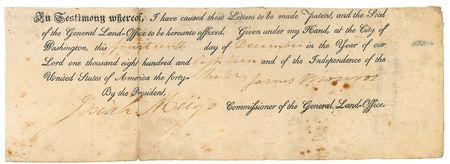 In Testimony whereof, I have caused these Letters to be made Patent, and the Seal
of the General Land-Office to be hereunto affixed. Given under my Hand, at the City of
Washington, this fourteenth day of December in the Year of our
Lord one thousand eight hundred and Eighteen and of the Independence of the
United States of America the forty- third James Monroe
By the President,
Josiah Meigs Commissioner of the General Land-Office.